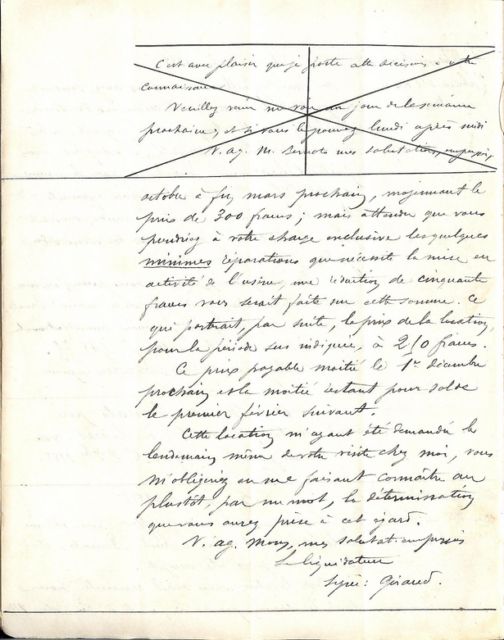 C'est avec plaisir que je porte cette décision à votre
connaissance.
Veuillez venir me voir un jour de la semaine
prochaine, et si vous le pouvez lundi après midi
V. ag. M. mes salutations empressées,
octobre à fin mars prochain, moyennant le
prix de 300 francs ; mais attendu que vous
prendriez à votre charge exclusive les quelques
minimes réparations que nécessite la mise en
activité de l'usine, une réduction de cinquante
francs vous serait faite sur cette somme. Ce
qui porterait, par suite, le prix de la location
pour la période sus indiquée, à 250 francs.
Ce prix payable moitié le 1er décembre
prochain et la moitié restant pour solde
le premier février suivant.
Cette location m'ayant été demandée le
lendemain même de votre visite chez moi, vous
m'obligeriez en me faisant connaître au
plustôt, par un mot, la détermination
que vous aurez prise à cet égard.
V. ag. Mons, mes salutat. empressées
Le liquidateur
Signé : Géraud.